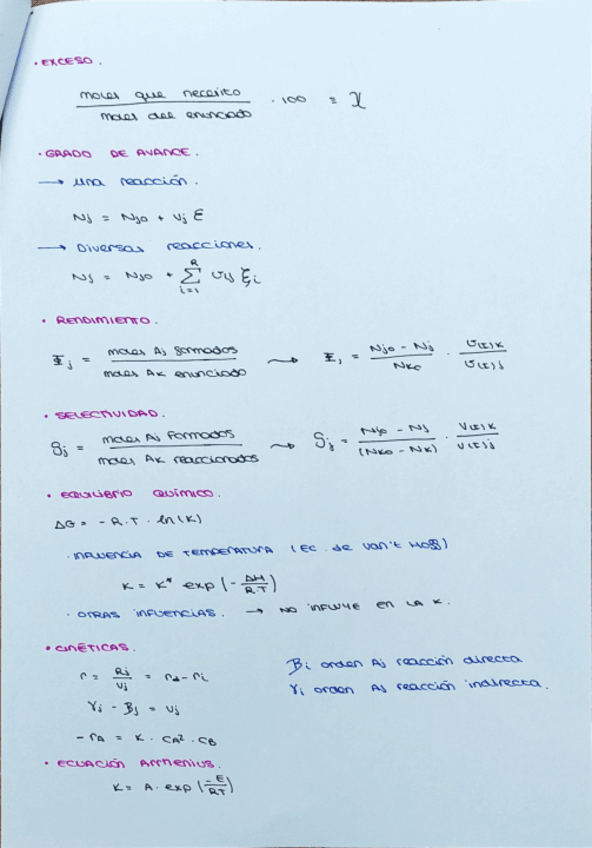 · EXCESO.
moles que necesito / moles del enunciado · 100 = X
· GRADO DE AVANCE.
→ una reacción.
Nj = Njo + νj ξ
→ Diversas reacciones.
Nj = Njo + Σ_{i=1}^{R} νij ξi
· RENDIMIENTO.
Φj = moles Aj formados / moles Ak enunciado → Φj = Njo - Nj / Nko · ν(I)k / ν(I)j
· SELECTIVIDAD.
Sj = moles Aj formados / moles Ak reaccionados → Sj = Njo - Nj / (Nko - Nk) · ν(I)k / ν(I)j
· EQUILIBRIO QUÍMICO.
ΔG = - R · T · ln(K)
· INFLUENCIA DE TEMPERATURA (EC. de van't Hoff)
K = K* exp (- ΔH / R·T)
· OTRAS INFLUENCIAS. → NO INFLUYE EN LA K.
· CINÉTICAS.
r = Rj / νj = rd - ri
βi orden Aj reacción directa
γj - βj = νj
γi orden Aj reacción indirecta.
- rA = K · CA² · CB
· ECUACIÓN Arrhenius.
K = A · exp (-E / RT)